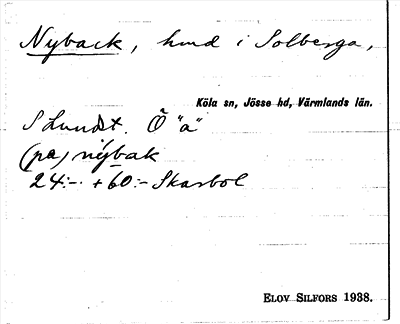 Nyback, hmd i Solberga,
Köla sn, Jösse hd, Värmlands län.
S Lundst. Ö "a"
(pa) nybak
24:-. + 60:- Skarbol
ELOV SILFORS 1938.